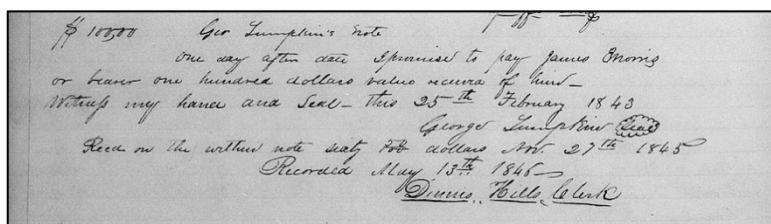 $ 100,00 Geo Lumpkin's note
One day after date I promise to pay James Morris
or bearer one hundred dollars value receivd of him –
Witness my hand and Seal – this 25th February 1843
George Lumpkin Seal
Recd on the within note sixty dollars Nov 27th 1845
Recorded May 13th 1846
Dennis Hills, Clerk